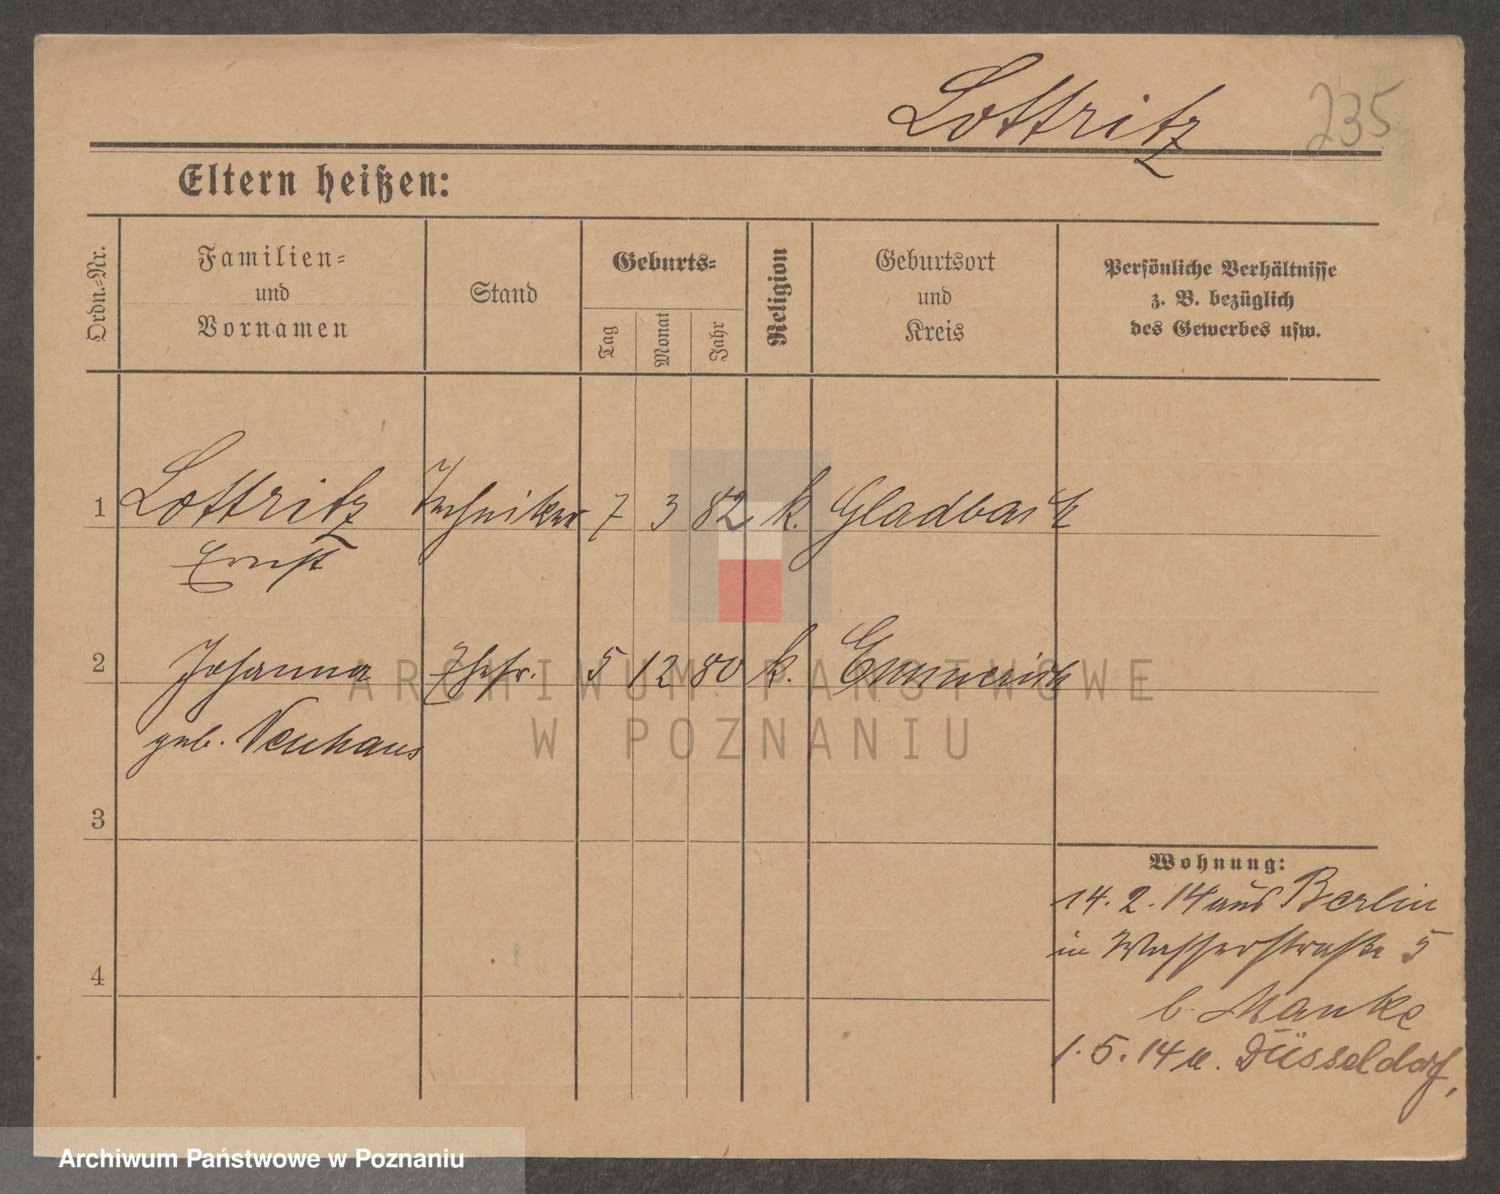 Lottritz 235
Eltern heißen:
Ordn.-Nr.
Familien-
und
Vornamen
Stand
Geburts-
Tag
Monat
Jahr
Religion
Geburtsort
und
Kreis
Persönliche Verhältnisse
z. B. bezüglich
des Gewerbes usw.
1 Lottritz Techniker 7 3 82 k. Gladback
Ernst
2 Johanna Ehefr. 5 12 80 k. Emmerich
geb. Neuhaus
3
4
Wohnung:
14. 2. 14 aus Berlin
in Wasserstraße 5
b. Manke
1. 5. 14 n. Düsseldorf,
ARCHIWUM PAŃSTWOWE
W POZNANIU
Archiwum Państwowe w Poznaniu